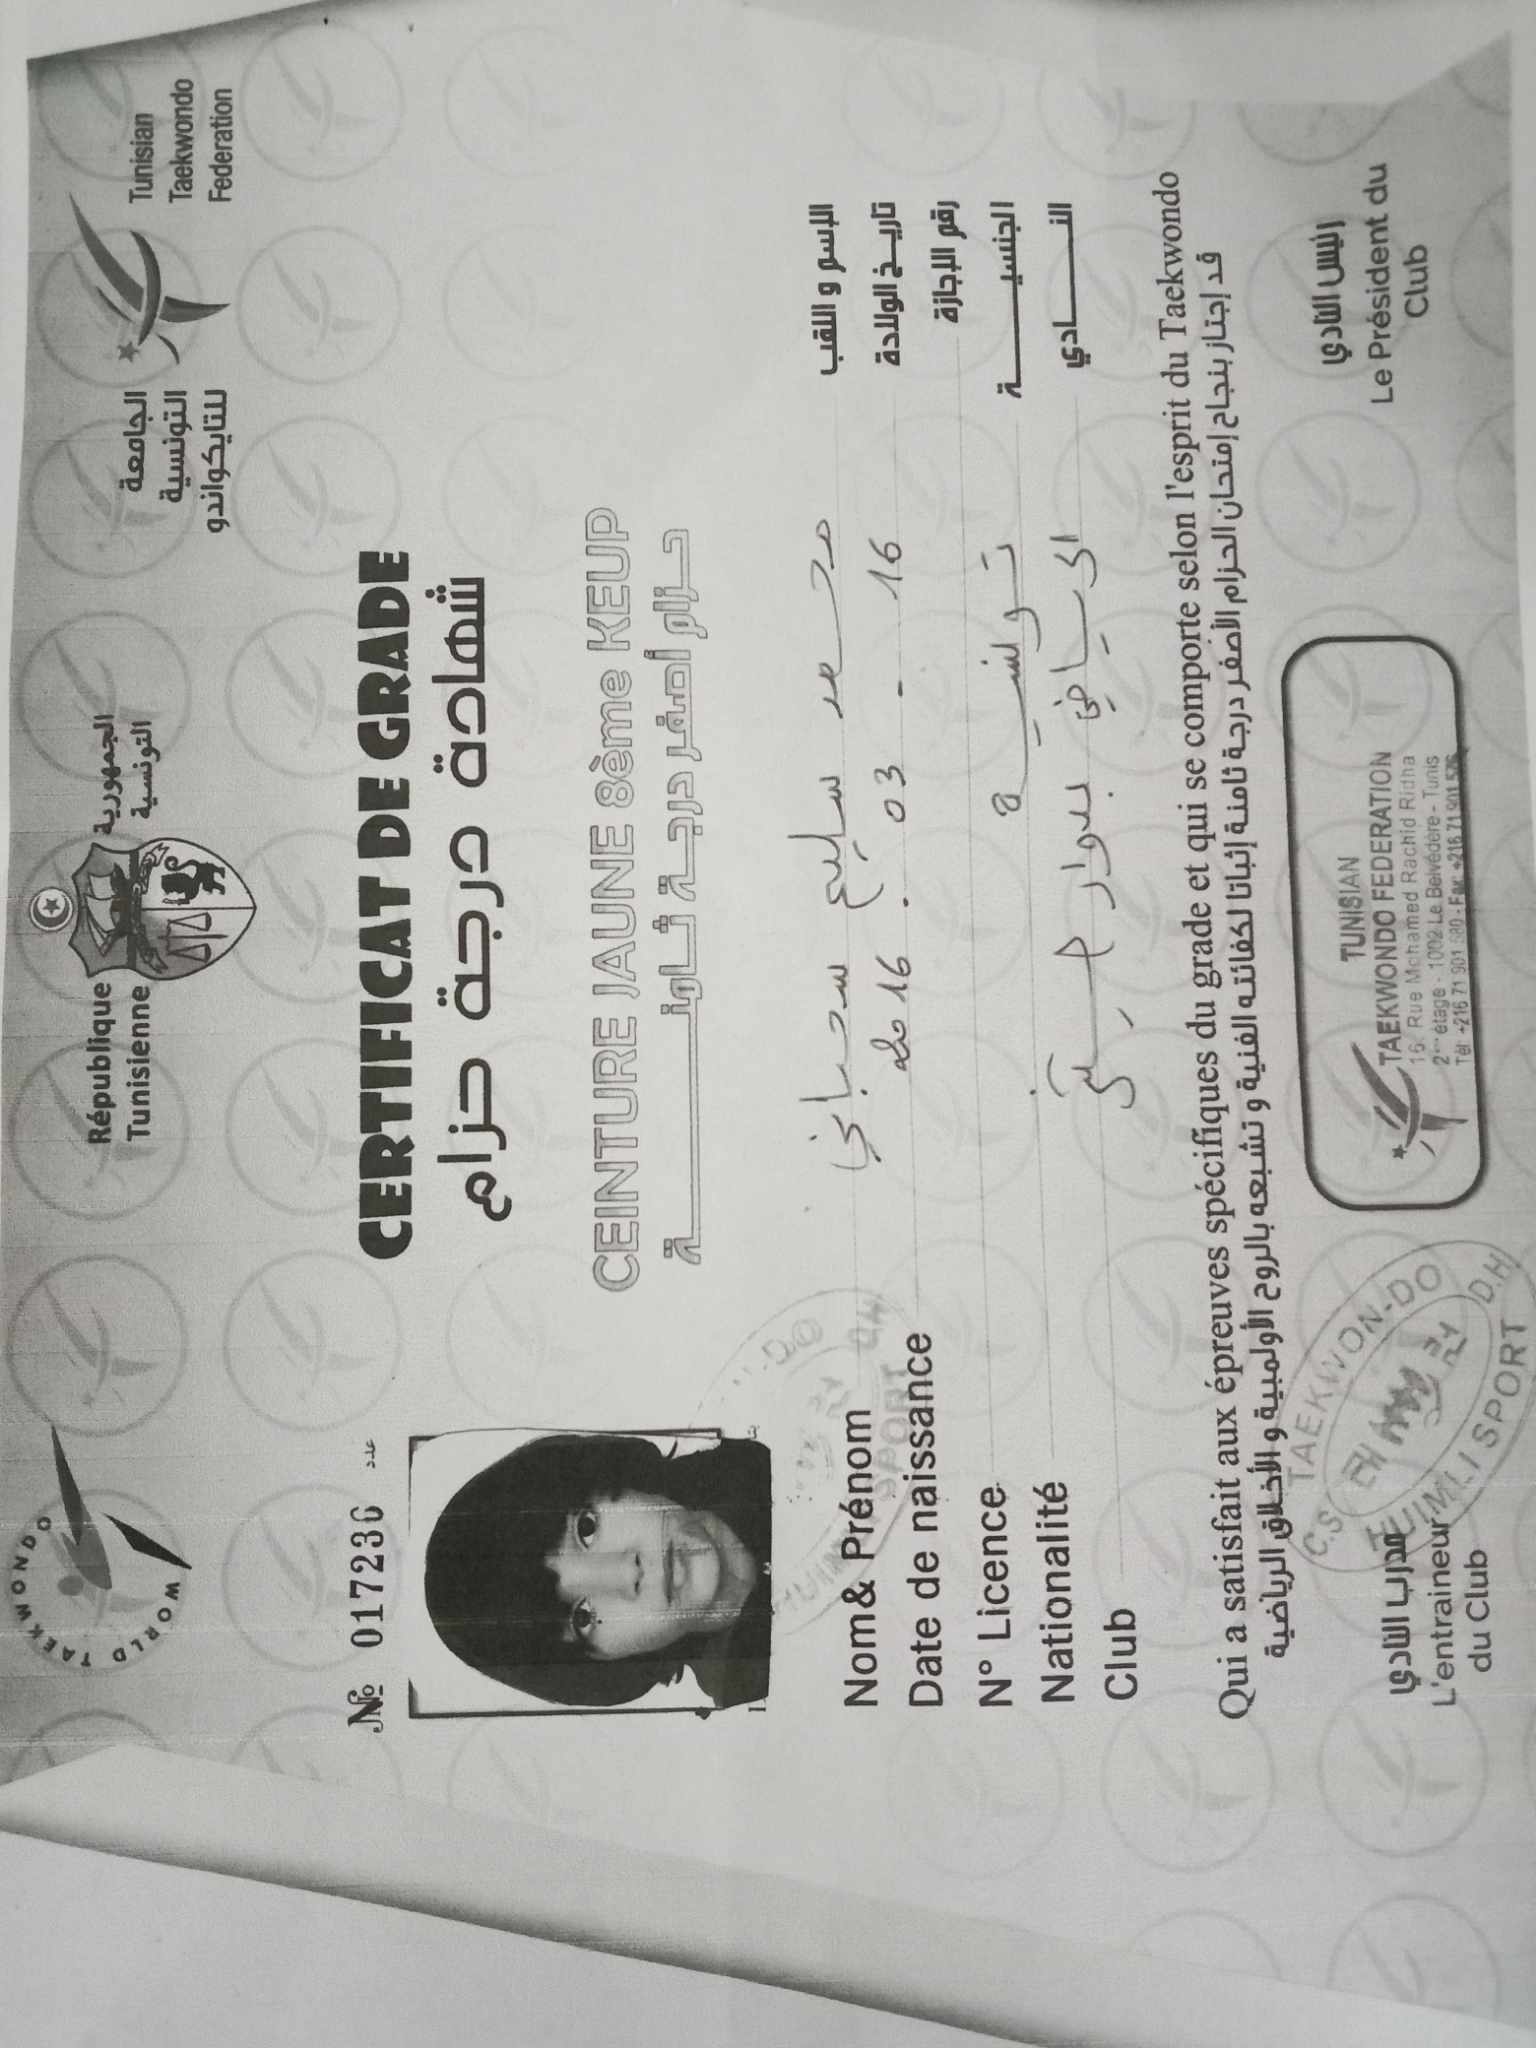 WORLD TAEKWONDO
République
Tunisienne
الجمهورية
التونسية
الجامعة
التونسية
للتايكواندو
Tunisian
Taekwondo
Federation
№ 017236 عدد
CERTIFICAT DE GRADE
شهادة درجة حزام
CEINTURE JAUNE 8ème KEUP
حزام أصفر درجة ثامنة
Nom& Prénom محمد سليم سحباني الإسم و اللقب
Date de naissance 16 03 - 16 تاريخ الولادة
N° Licence رقم الإجازة
Nationalité تونسية الجنسية
Club الرياضي بدوار النادي
Qui a satisfait aux épreuves spécifiques du grade et qui se comporte selon l'esprit du Taekwondo
قد إجتاز بنجاح إمتحان الحزام الأصفر درجة ثامنة إثباتا لكفائته الفنية و تشبعه بالروح الأولمبية و الأخلاق الرياضية
مدرب النادي
L'entraineur
du Club
C.S TAEKWON-DO D.H
SPORT
TUNISIAN
TAEKWONDO FEDERATION
16, Rue Mohamed Rachid Ridha
2ème étage - 1002 Le Belvédère - Tunis
Tél +216 71 901 580 - Fax: +216 71 901 576
رئيس النادي
Le Président du
Club